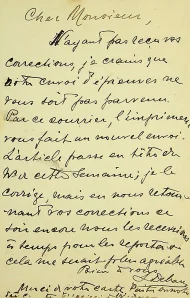 Cher Monsieur,
N'ayant pas reçu vos
corrections, je crains que
notre envoi d'épreuves ne
vous soit pas parvenu.
Par ce courrier, l'imprimeur
vous fait un nouvel envoi.
L'article passe en tête du
cette semaine; je le
corrige, mais en nous retour-
nant vos corrections ce
soir encore nous les recevrions
à temps pour les reporter et
cela me serait plus agréable
Bien à vous
Merci de votre carte.